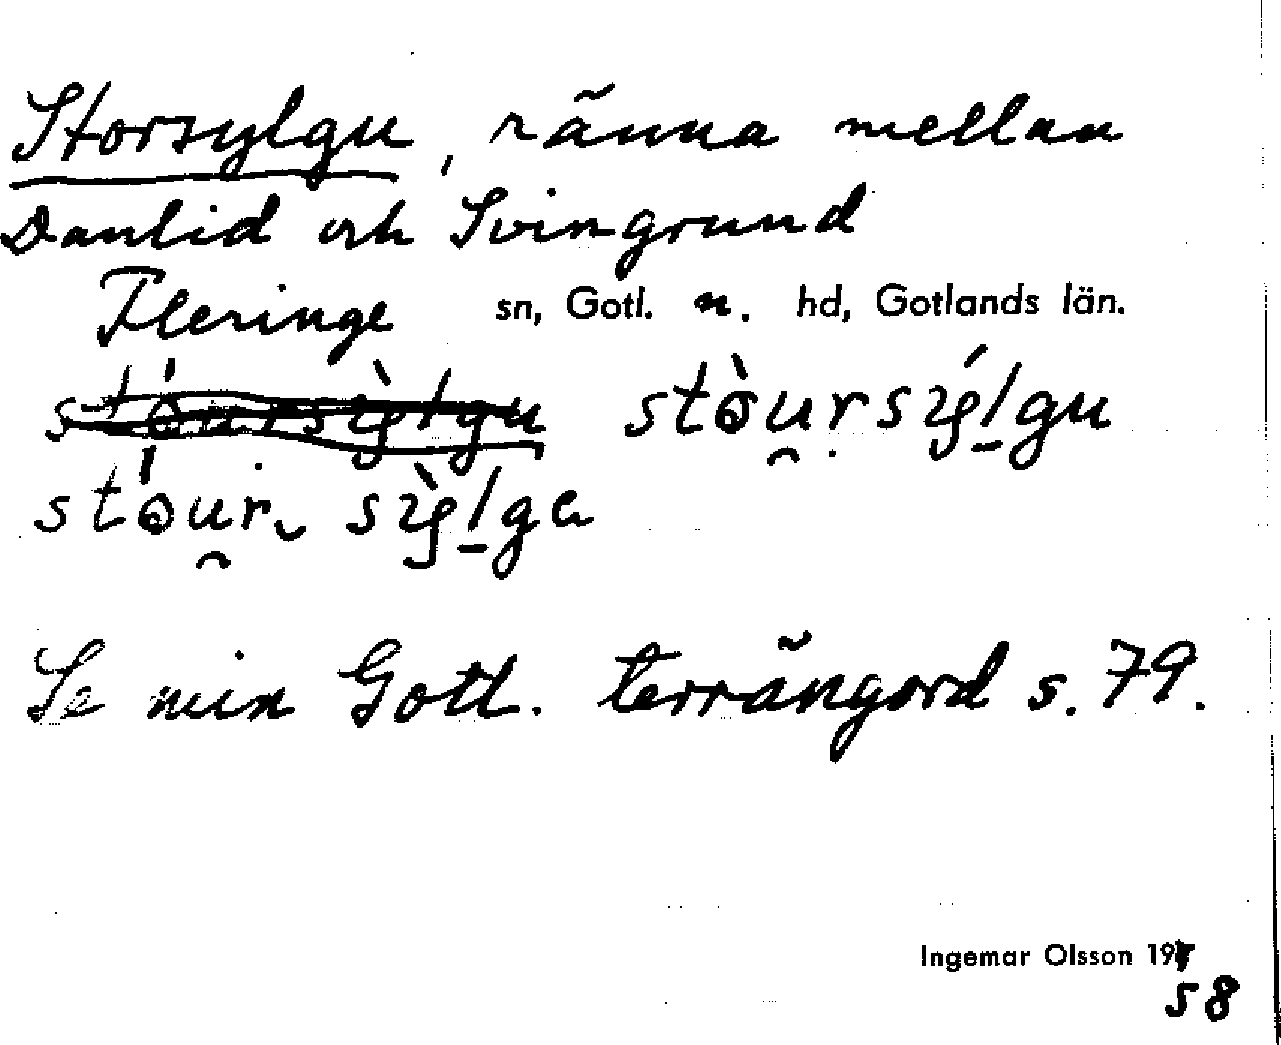 Storsylgu, ränna mellan
Danlid och Svingrund
Fleringe sn, Gotl. n. hd, Gotlands län.
Se min Gotl. terrängord s. 79.
Ingemar Olsson 19
58